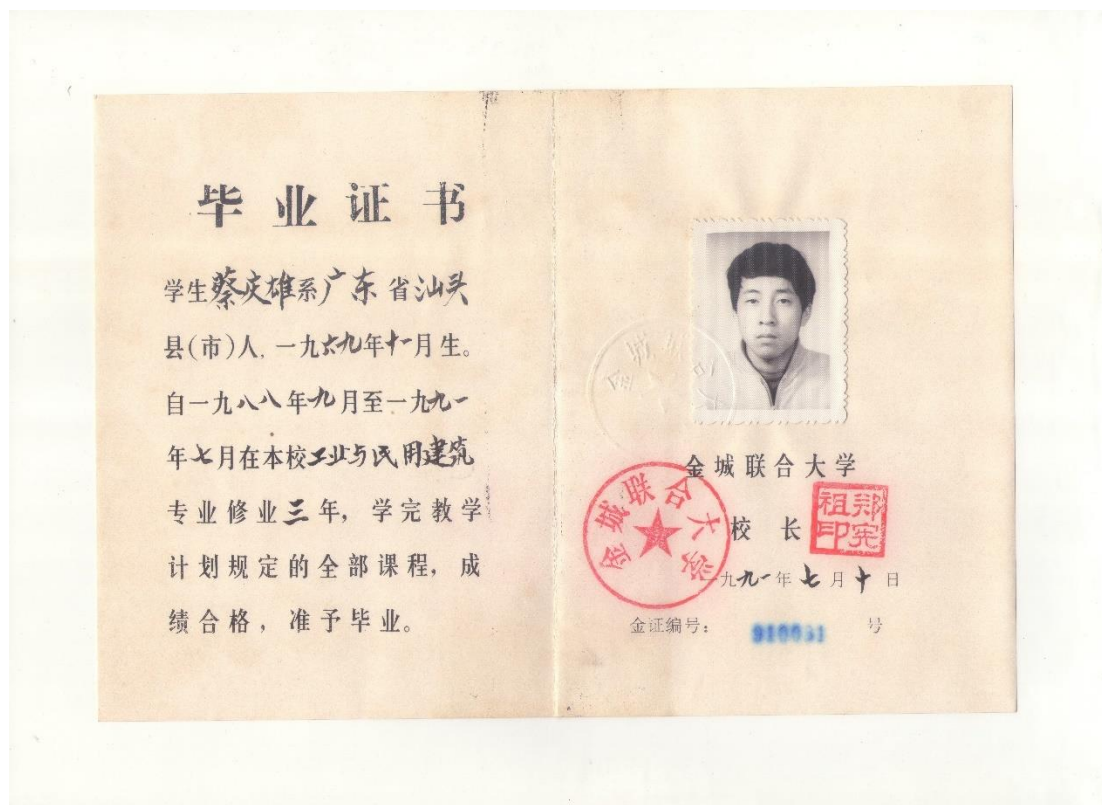 毕业证书
学生蔡庆雄系广东省汕头
县(市)人,一九六九年十一月生。
自一九八八年九月至一九九一
年七月在本校工业与民用建筑
专业修业三年,学完教学
计划规定的全部课程,成
绩合格,准予毕业。
金城联合大学
金城联合大学
校长
郑宪祖印
一九九一年七月十日
金证编号: 910031 号